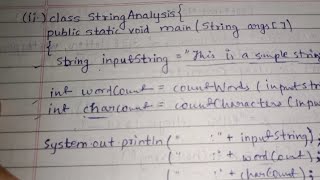 (ii) class StringAnalysis{
public static void main(String args[])
{
String inputString = "This is a simple string
int wordCount = countWords(inputstri
int charcount = countCharacters(inpu
System.out.println(" :"+ inputString);
(" :"+ wordCount);
(" :"+ charCount);